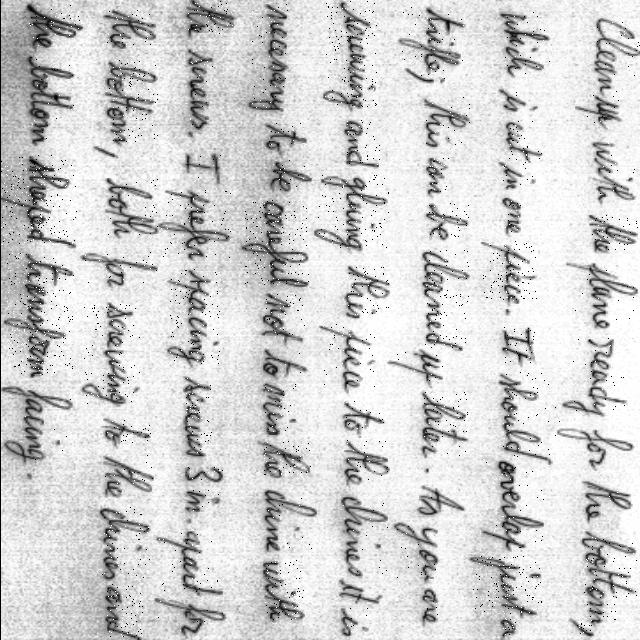 Clean up with the plane ready for the bottom,
which is cut in one piece. It should overlap just a
trifle; this can be cleaned up later. As you are
screwing and gluing this piece to the it is
necessary to be careful not to miss the with
the screws. I prefer spacing screws 3 in. apart for
the bottom, both for screwing to the and
the bottom shaped transform facing.